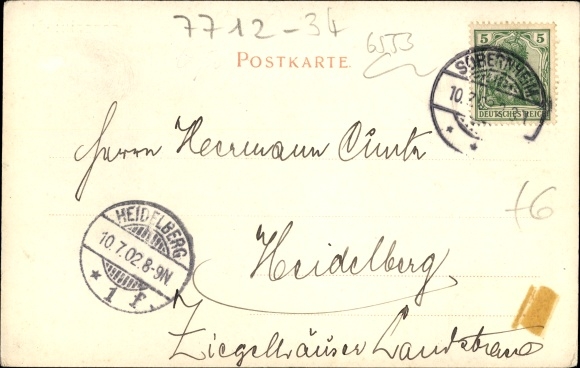 7712-34
6553
POSTKARTE
5 5
DEUTSCHES REICH
SOBERNHEIM
10.7.
Herrn Heermann Cuntz
HEIDELBERG
10.7.02.8-9N.
* 1 F. *
+6
Heidelberg
Ziegelhäuser Landstrasse